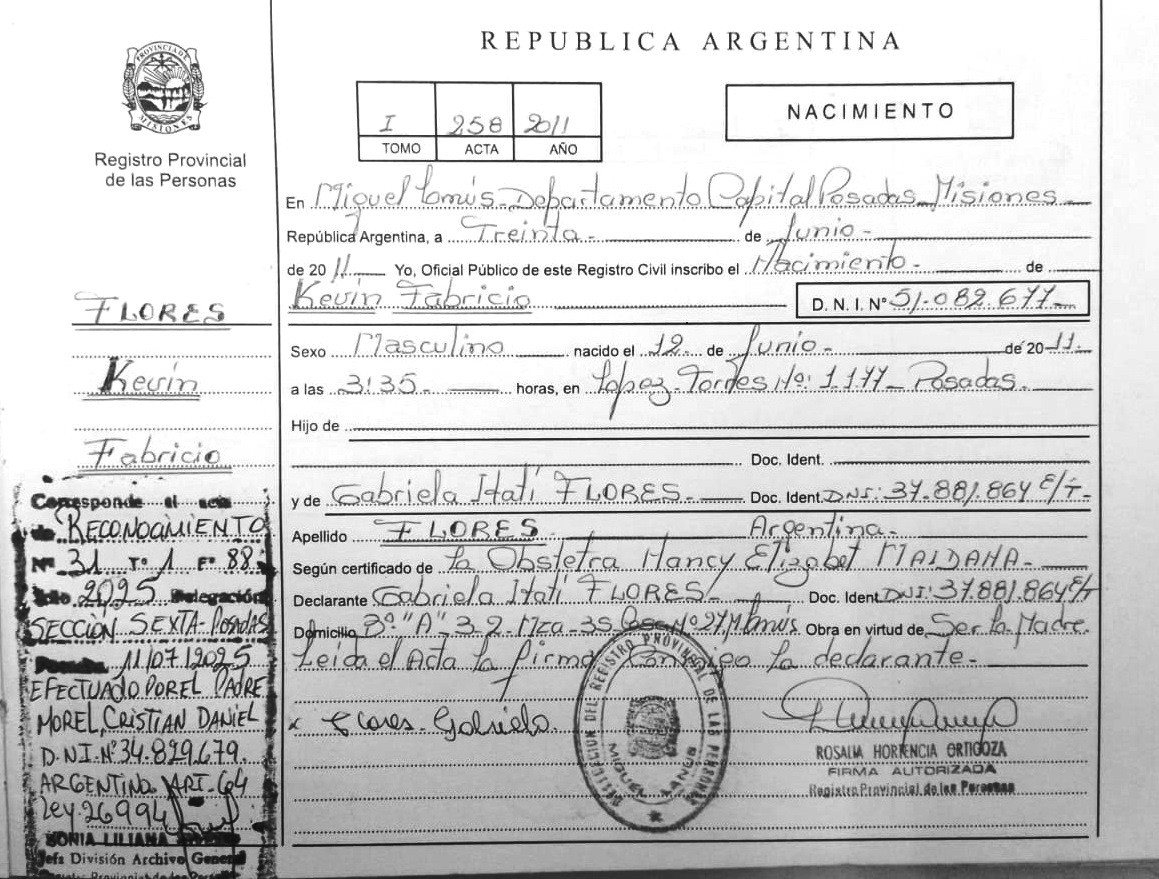 REPUBLICA ARGENTINA
PROVINCIA DE MISIONES
Registro Provincial
de las Personas
I 258 2011
TOMO ACTA AÑO
NACIMIENTO
En Miguel Lanús - Departamento Capital Posadas Misiones
República Argentina, a Treinta - de Junio -
de 2011 Yo, Oficial Público de este Registro Civil inscribo el Nacimiento - de
Kevin Fabricio D. N. I. Nº 51.082.677
Sexo Masculino nacido el 12 de Junio - de 2011.
a las 3:35 - horas, en Lopez Torres Nº: 1177 - Posadas.
Hijo de
Doc. Ident.
y de Gabriela Itatí FLORES - Doc. Ident. DNI: 37.881.864 E/T -
Apellido FLORES Argentina -
Según certificado de la Obstetra Nancy Elizabet MALDANA -
Declarante Gabriela Itatí FLORES - Doc. Ident. DNI: 37.881.864 E/T
Domicilio Bº "A" 3-2 Mza - 35 Casa Nº 27 M. Lanús Obra en virtud de Ser la Madre.
Leida el Acta la firma Conmigo la declarante -
x Flores Gabriela.
DELEGACION DEL REGISTRO PROVINCIAL DE LAS PERSONAS
MIGUEL LANUS
ROSALIA HORTENCIA ORTIGOZA
FIRMA AUTORIZADA
Registro Provincial de las Personas
FLORES
Kevin
Fabricio
Corresponde al acta
de RECONOCIMIENTO
Nº 31 Tº 1 Fº 88
Año 2025 Delegación
SECCION SEXTA - POSADAS
Posadas 11/07/2025
EFECTUADO POR EL PADRE
MOREL, CRISTIAN DANIEL
D.N.I. Nº 34.829.679.
ARGENTINO. ART. 64
Ley 26994
SONIA LILIANA
Jefa División Archivo General
Registro Provincial de las Personas